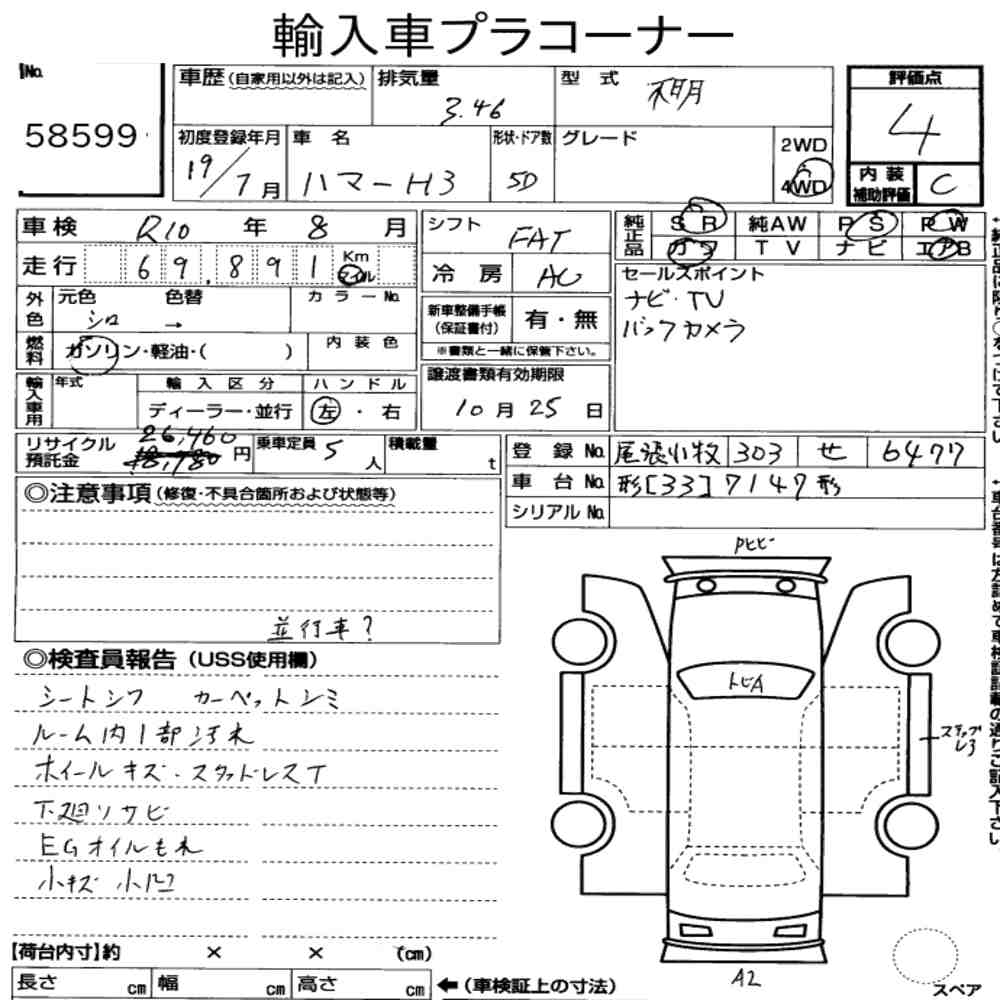 輸入車プラコーナー
No. 58599
車歴(自家用以外は記入) 排気量 3.46 型式 不明
初度登録年月 19/7月 車名 ハマーH3 形状・ドア数 5D グレード 2WD 4WD
評価点 4
内装補助評価 C
車検 R10年 8月 シフト FAT
走行 69.891 Km マイル 冷房 AC
外色 元色 シロ → 色替 カラーNo.
燃料 ガソリン・軽油・( ) 内装色
新車整備手帳(保証書付) 有・無
※書類と一緒に保管下さい。
輸入車用 年式 輸入区分 ディーラー・並行 ハンドル 左・右
譲渡書類有効期限 10月25日
リサイクル預託金 26,460 18,780 円 乗車定員 5人 積載量 t
純正品 SR 純AW PS PW
カワ TV ナビ エアB
セールスポイント
ナビ・TV
バックカメラ
登録No. 尾張小牧 303 せ 6477
車台No. 形[33]7147形
シリアルNo.
◎注意事項(修復・不具合箇所および状態等)
並行車?
◎検査員報告(USS使用欄)
シートシワ カーペットシミ
ルーム内1部汚れ
ホイールキズ・スタッドレスT
下廻りサビ
EGオイルもれ
小キズ 小凹
Pヒビ
トビA
ステップ
レ3
A2
スペア
【荷台内寸】約 × × (cm)
長さ cm 幅 cm 高さ cm ←(車検証上の寸法)